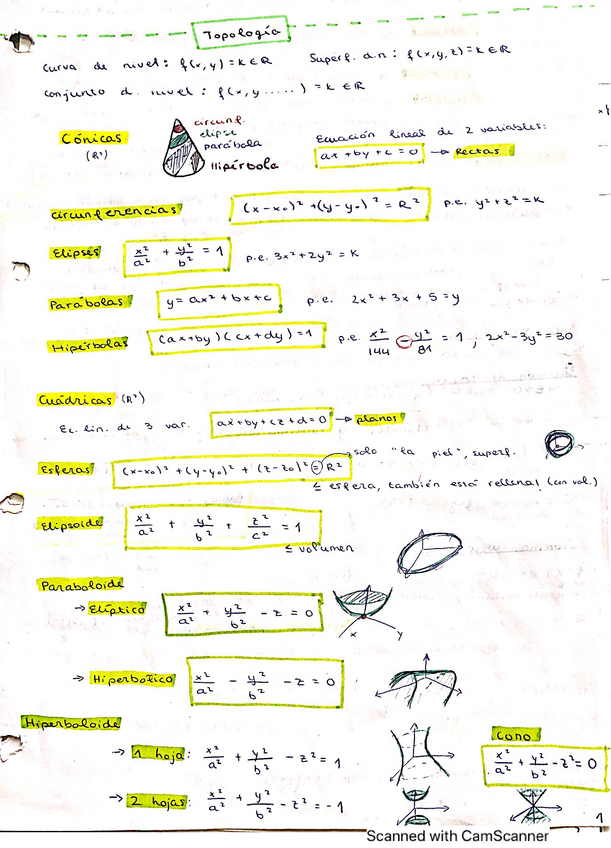 Topología
Curva de nivel: f(x,y) = K ∈ R    Superf. d.n: f(x,y,z) = K ∈ R
Conjunto d. nivel: f(x,y.....) = K ∈ R
Cónicas
(R²)
circunf.
elipse
parábola
Hipérbola
Ecuación lineal de 2 variables:
ax + by + c = 0 → Rectas
Circunferencias    (x-x₀)² + (y-y₀)² = R²    p.e. y² + z² = K
Elipses    x²/a² + y²/b² = 1    p.e. 3x² + 2y² = K
Parábolas    y = ax² + bx + c    p.e. 2x² + 3x + 5 = y
Hipérbolas    (ax+by)(cx+dy) = 1    p.e. x²/144 − y²/81 = 1 ; 2x² - 3y² = 30
Cuádricas (R³)
Ec. lin. de 3 var.    ax + by + cz + d = 0 → planos
solo "la piel", superf.
Esferas    (x-x₀)² + (y-y₀)² + (z-z₀)² = R²
≤ esfera, también está rellena! (con vol.)
Elipsoide    x²/a² + y²/b² + z²/c² = 1
≤ volumen
Paraboloide
→ Elíptico    x²/a² + y²/b² - z = 0
x    y
→ Hiperbólico    x²/a² - y²/b² - z = 0
Hiperboloide
→ 1 hoja: x²/a² + y²/b² - z² = 1
Cono
x²/a² + y²/b² - z² = 0
→ 2 hojas: x²/a² + y²/b² - z² = -1
1
Scanned with CamScanner